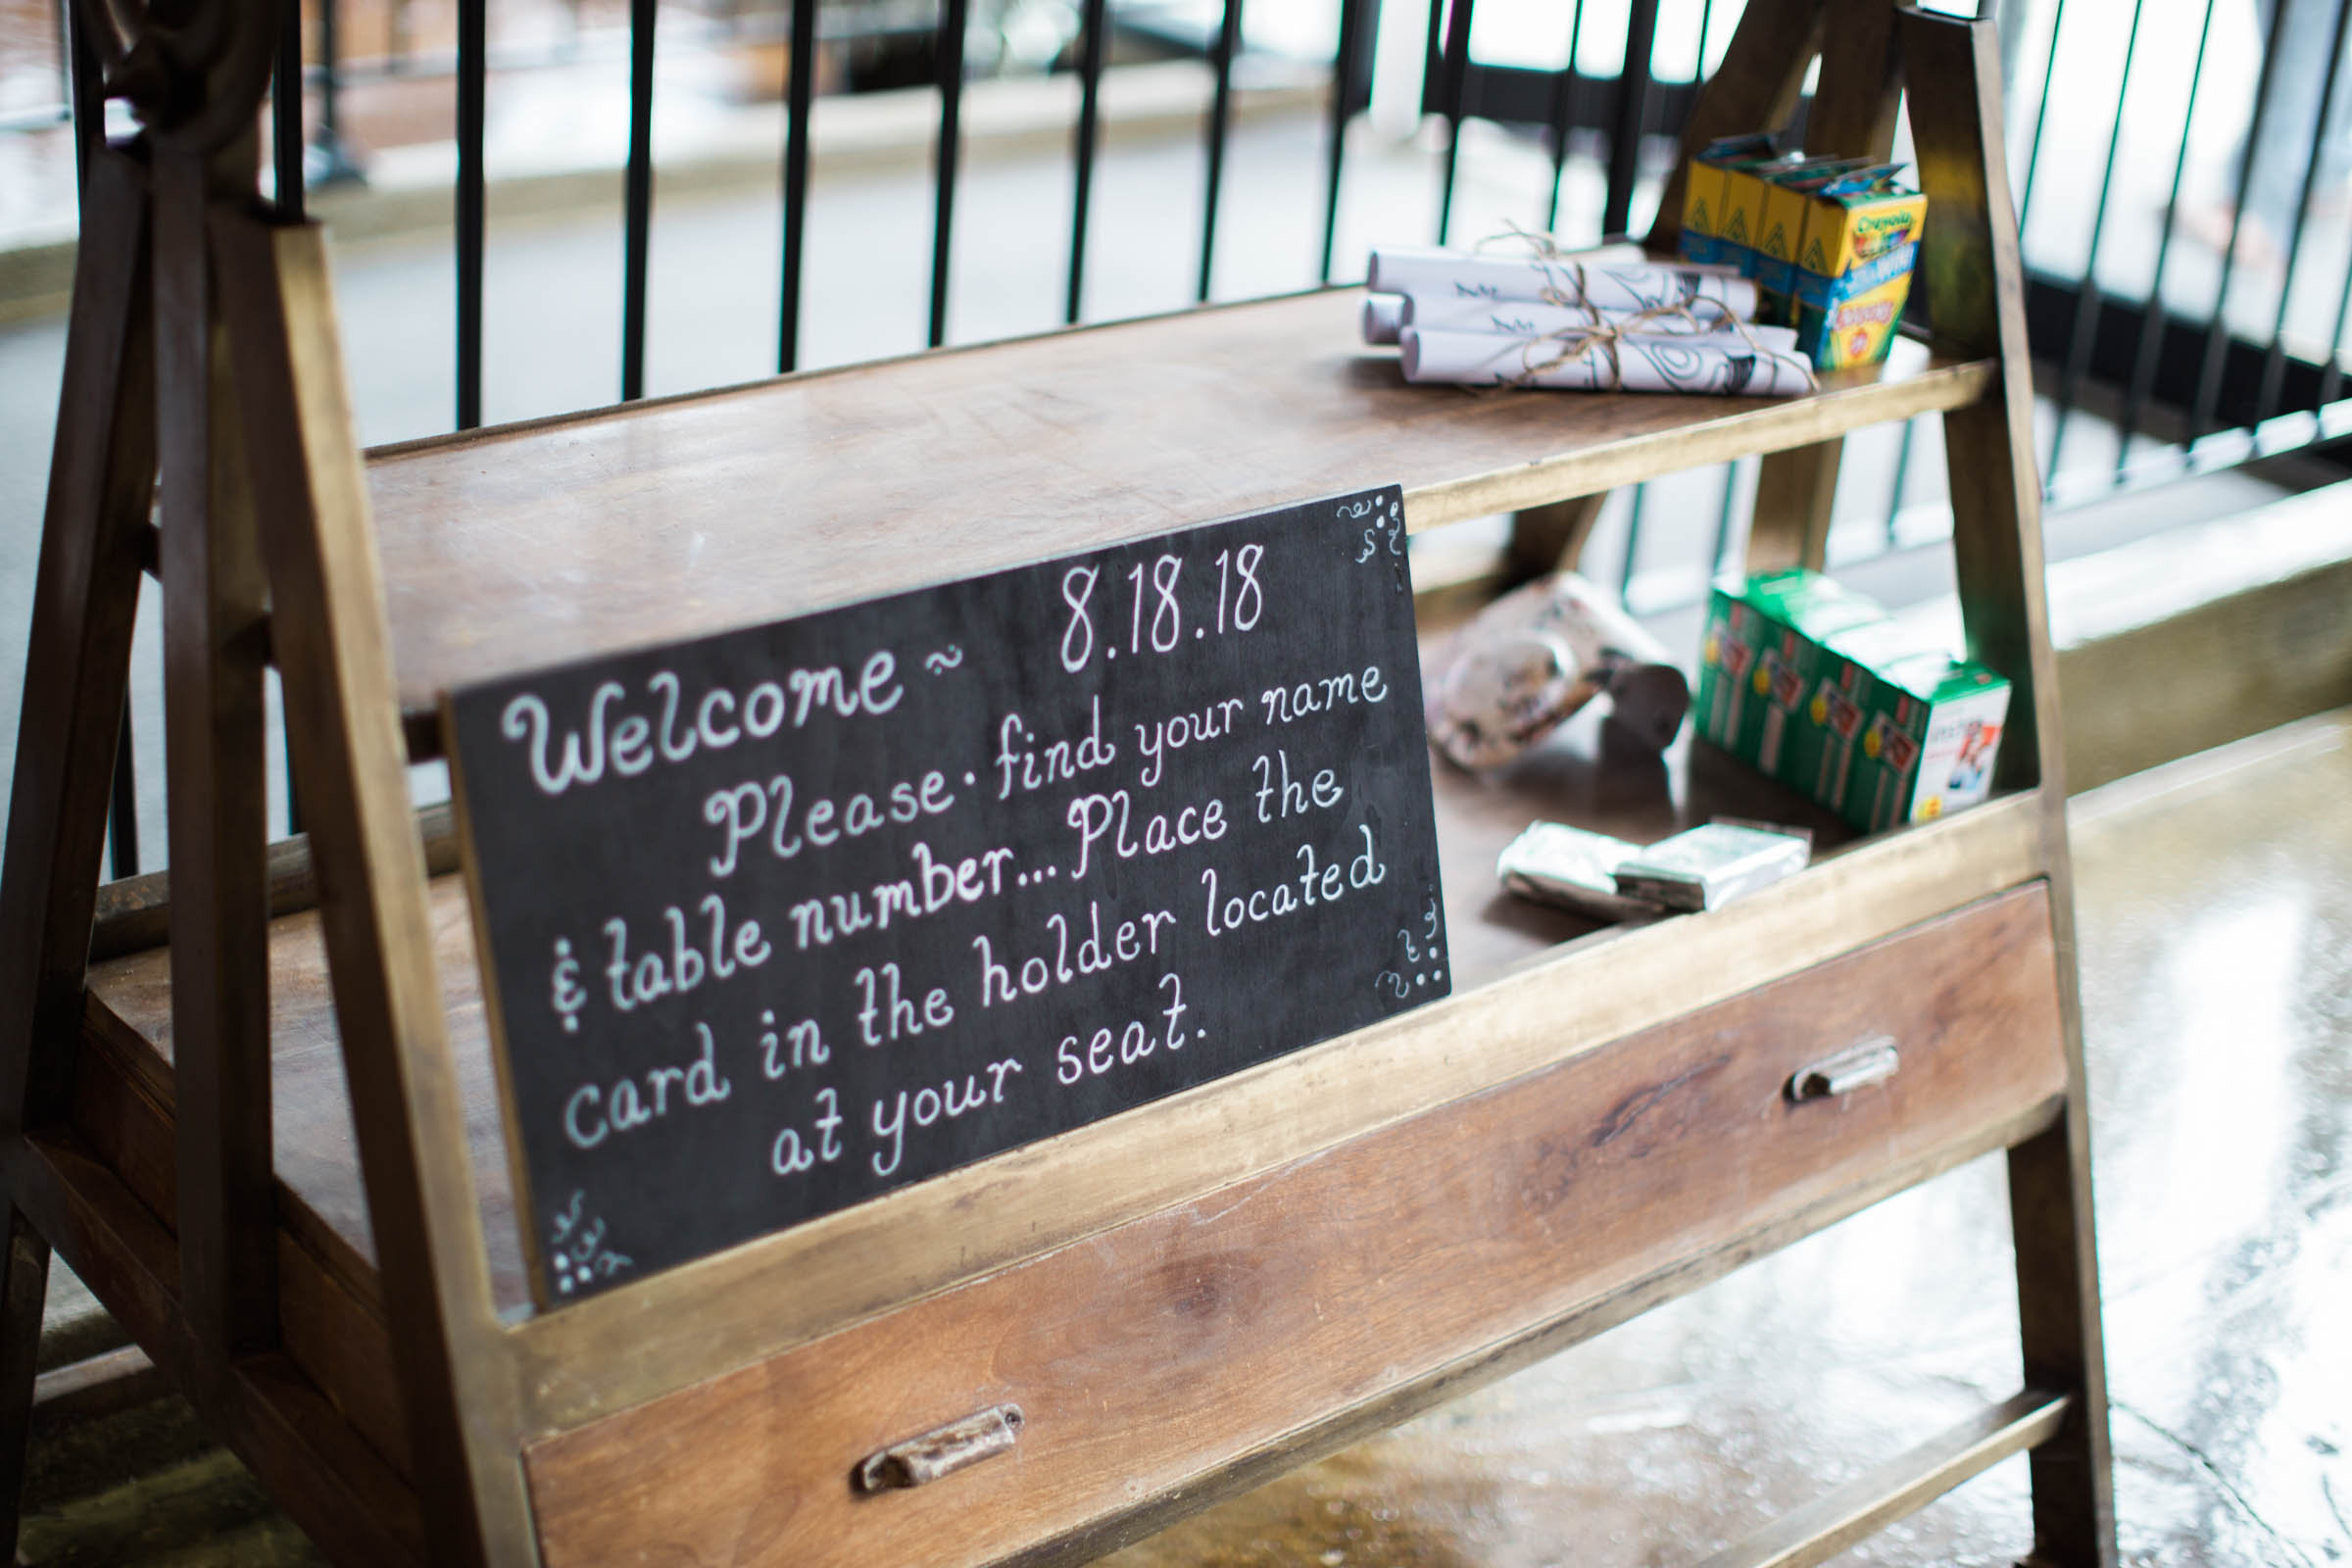 Welcome ~ 8.18.18
Please · find your name
& table number... Place the
card in the holder located
at your seat.
Crayola